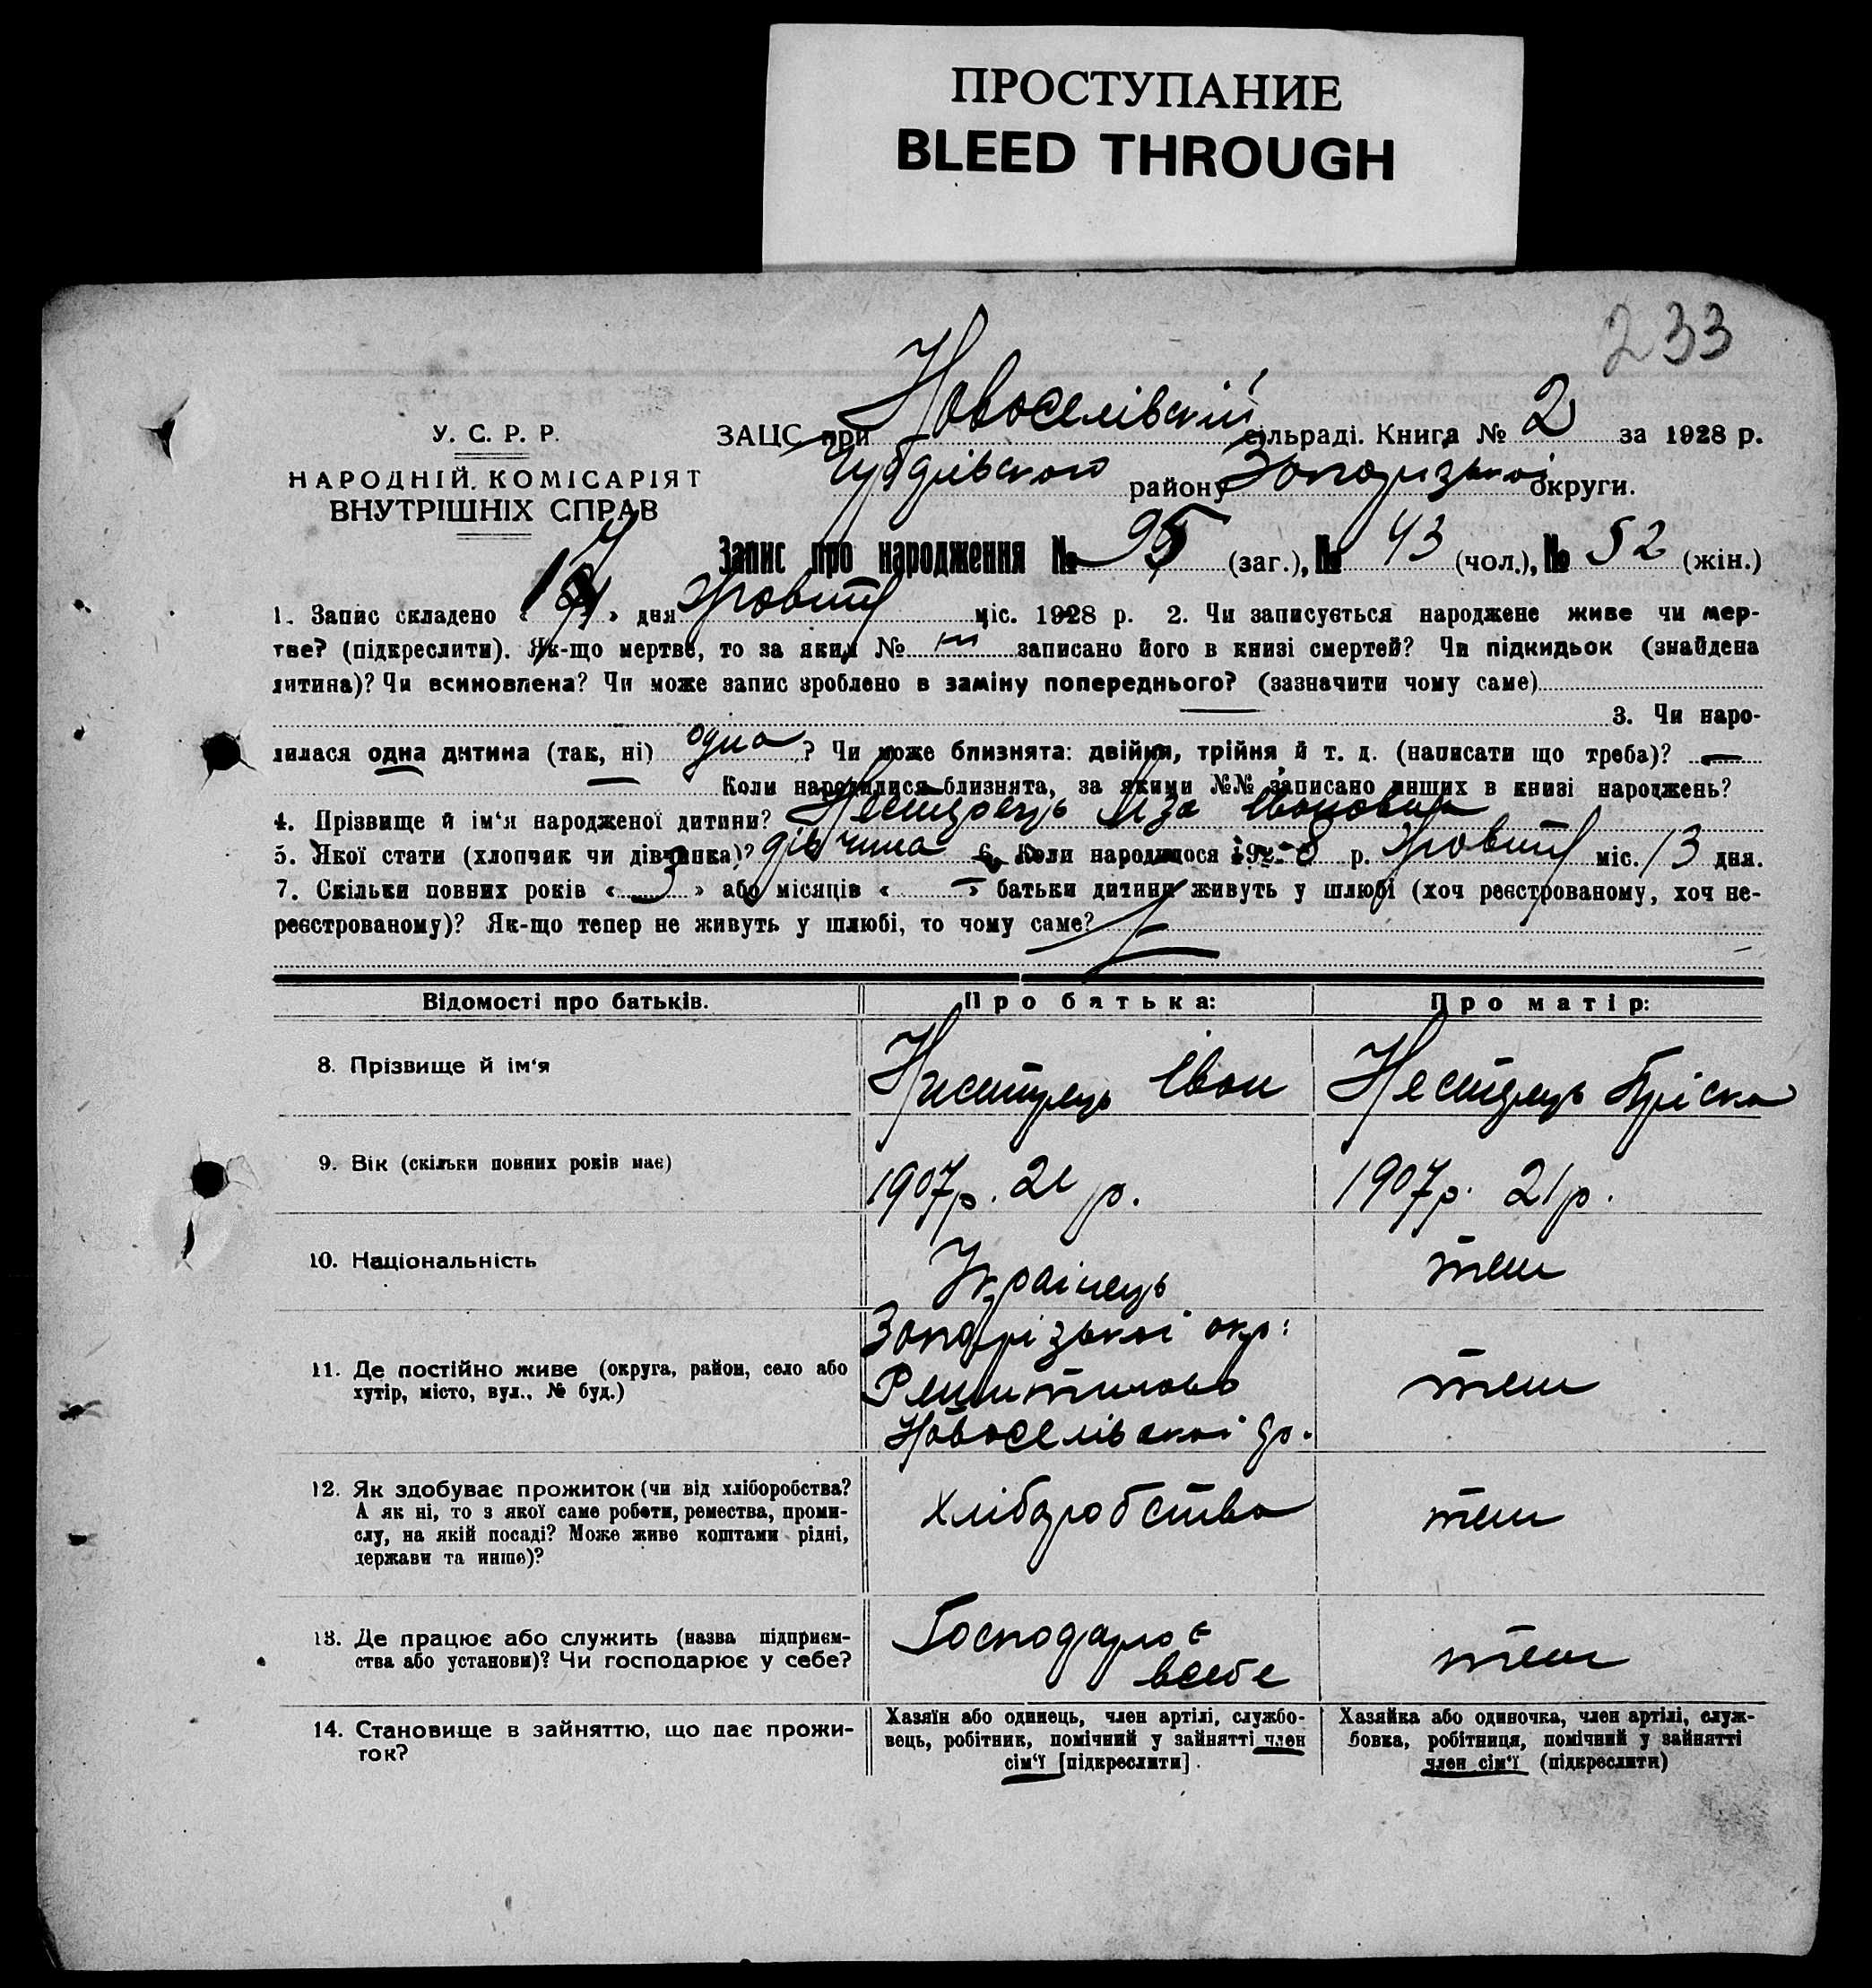 ПРОСТУПАНИЕ
BLEED THROUGH
233
У. С. Р. Р.
НАРОДНІЙ КОМІСАРІЯТ
ВНУТРІШНІХ СПРАВ
ЗАЦС при Новоселівскій сільраді. Книга № 2 за 1928 р.
району округи.
Запис про народження № 95 (заг.), № 43 (чол.), № 52 (жін.)
1. Запис складено « » дня Жовтня міс. 1928 р. 2. Чи записується народжене живе чи мер-
тве? (підкреслити). Як-що мертве, то за яким № записано його в книзі смертей? Чи підкидьок (знайдена
дитина)? Чи всиновлена? Чи може запис зроблено в заміну попереднього? (зазначити чому саме)
3. Чи наро-
дилася одна дитина (так, ні) одна ? Чи може близнята: двійня, трійня й т. д. (написати що треба)? —
Коли народилися близнята, за якими №№ записано инших в книзі народжень?
4. Прізвище й ім‘я народженої дитини?
5. Якої стати (хлопчик чи дівчинка)? дівчина 6. Коли народилося 1928 р. Жовтня міс. 13 дня.
7. Скільки повних років « 3 » або місяців « — » батьки дитини живуть у шлюбі (хоч реєстрованому, хоч не-
реєстрованому)? Як-що тепер не живуть у шлюбі, то чому саме?
Відомості про батьків. Про батька: Про матір:
8. Прізвище й ім‘я Іван
9. Вік (скільки повних років має) 1907р. 21 р. 1907р. 21р.
10. Національність Украінець теш
11. Де постійно живе (округа, район, село або
хутір, місто, вул., № буд.) теш
Новоселівскоі
12. Як здобуває прожиток (чи від хліборобства?
А як ні, то з якої саме роботи, ремества, проми-
слу, на якій посаді? Може живе коштами рідні,
держави та инше)? Хліборобство теш
13. Де працює або служить (назва підприєм-
ства або установи)? Чи господарює у себе? Господарює
всебе теш
14. Становище в зайняттю, що дає прожи-
ток?
Хазяїн або одинець, член артілі, службо-
вець, робітник, помічний у зайнятті член
сім‘ї [підкреслити].
Хазяйка або одиночка, член артілі, служ-
бовка, робітниця, помічний у зайнятті
член сім‘ї (підкреслити)